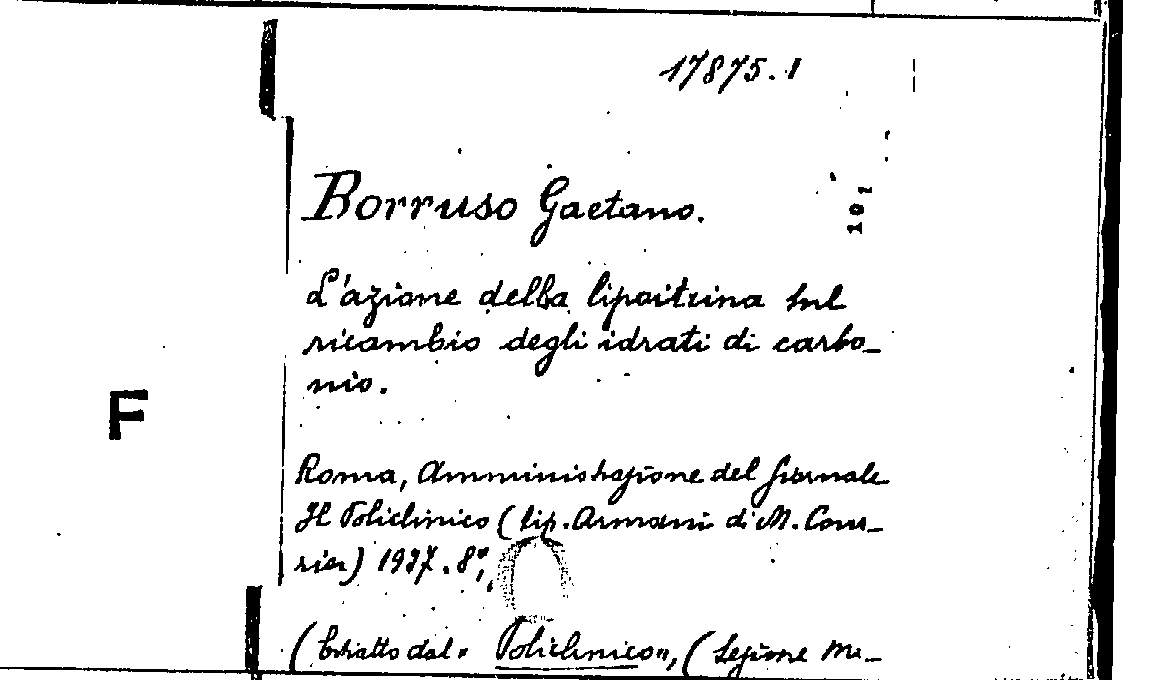 17875.1
101
Borruso Gaetano.
L'azione della lipoitrina sul
ricambio degli idrati di carbo_
nio.
F
Roma, Amministrazione del Giornale
Il Policlinico (tip. Armani di M. Cour_
rier) 1927. 8°,
(Estratto dal « Policlinico », (Sezione Me_